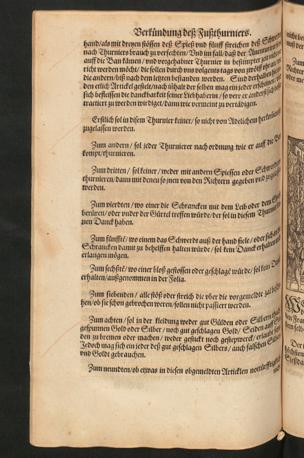 Verkündung deß Fußthurniers.
hand/als mit dreyen stössen deß Spieß und fünff streichen deß Schwerdts
nach Thurniers brauch zu versechten: Und im fall/daß der Thurnierer
auff die Ban kämen / und vorgehabter Thurnier in bestimpter zeit
nicht werden möcht/ die sollen durch uns volgents tags von zwölff uhr an
die andern/biß nach dem letzten bestanden worden. Sind derhalben
den etlich Artickel gestelt/nach inhalt der selben mag ein jeder erscheinen/
sich befleissen die danckbarkeit seiner Liebhaberin / so vere er anderst
tractiert zu werden würdiget/dann wie vermeint zu vertädigen.
Erstlich sol in disem Thurnier keiner / so nicht von Adelichem herkommen
zugelassen werden.
Zum andern / sol jeder Thurnierer nach ordnung wie er auff die Ban
kompt/thurnieren.
Zum dritten / sol keiner / weder mit andern Spiessen oder Schwerdten
thurnieren/dann mit denen so jnen von den Richtern gegeben und
werden.
Zum vierdten / wo einer die Schrancken mit dem Leib oder dem Spieß
berüren/ oder under der Gürtel treffen würde/der sol in diesem Thurnier
nen Danck haben.
Zum fünfften / wo einem das Schwerdt auß der hand fiele / oder sich an
Schrancken damit zu behelffen halten würde / sol kein Danck
erlangen mögen.
Zum sechsten / wo einer bloß gestossen oder geschlagē würde/ sol kein Danck
erhalten/außgenommen in der Folia.
Zum siebenden / alle stöß oder streich die uber die vorgemeldte zal
hen/ob sie schon gebrochen weren/sollen nicht passiert werden.
Zum achten / sol in der kleidung weder gut Gülden oder Silbern
gespunnen Gold oder Silber / noch gut geschlagen Gold/ Seiden
den zu bremen oder machen / weder gestickt noch gesteptwerck/ erlaubt
Jedoch mag sich ein jeder deß gut geschlagen Silbers / auch falschen Silbers
und Golds gebrauchen.
Zum neundten/ob etwas in diesen obgemeldten Articklen